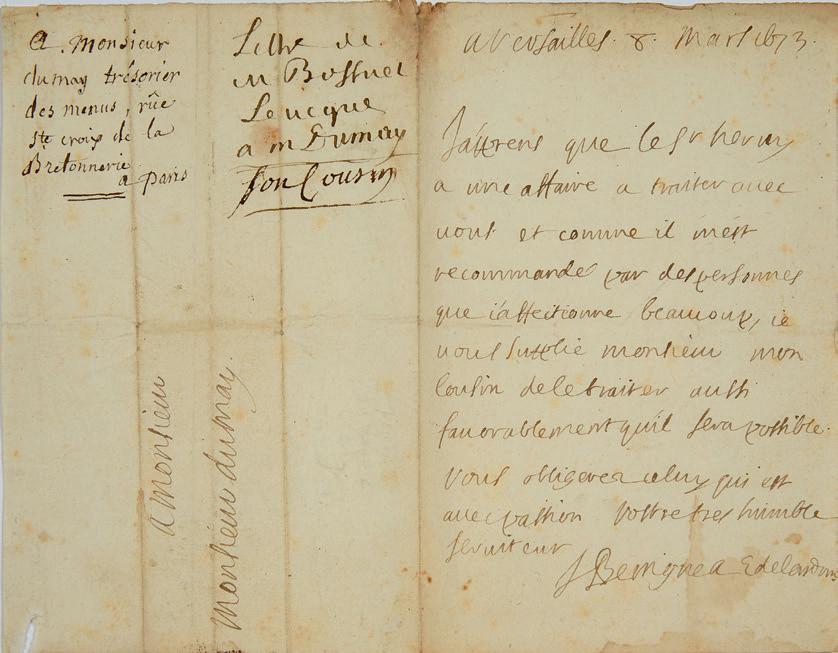 A. Monsieur
dumay trésorier
des menus, rüe
ste croix de la
Bretonnerie
a paris
Lettre de
m Bossuet
Leveque
a m Dumay
son Cousin
A Monsieur
Monsieur dumay.
a Versailles. 8. Mars 1673.
J'apprens que le Sr
a une affaire a traiter avec
vous et comme il m'est
recommandé par des personnes
que i'affectionne beaucoup, ie
vous supplie monsieur mon
cousin de le traiter aussi
favorablement qu'il sera possible.
Vous obligerez celuy qui est
avec passion vostre tres humble
serviteur
J Benigne a E de Condom